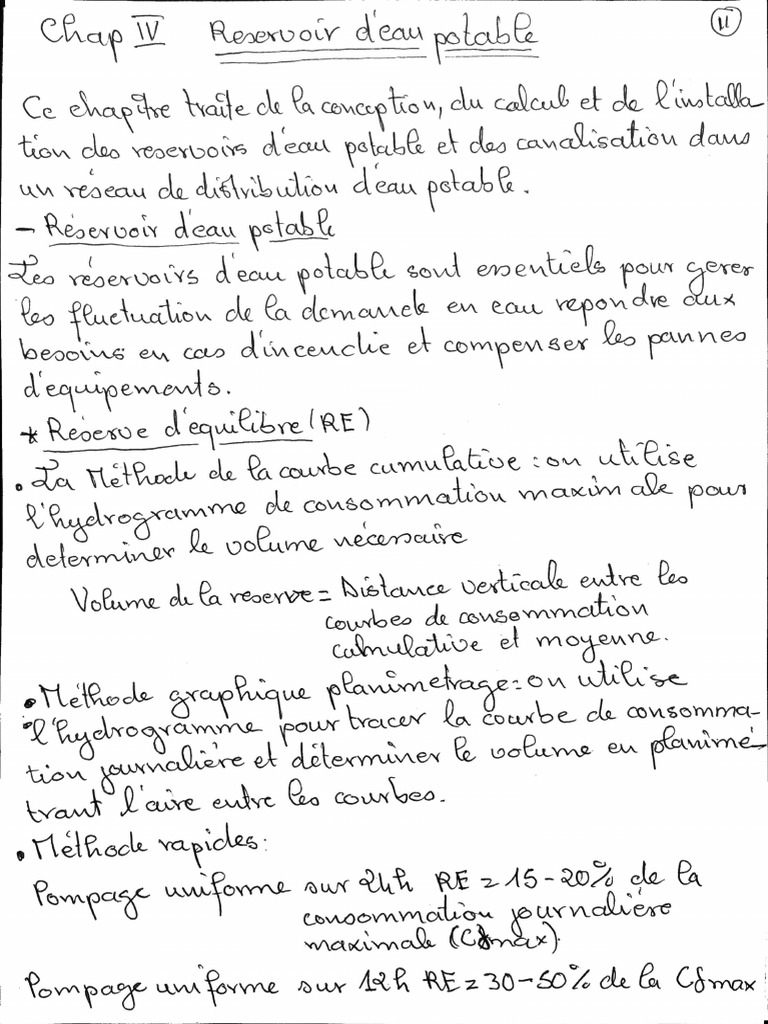 Chap IV Reservoir d'eau potable 11
Ce chapitre traite de la conception, du calcul et de l'installa
tion des reservoirs d'eau potable et des canalisation dans
un réseau de distribution d'eau potable.
- Réservoir d'eau potable
Les réservoirs d'eau potable sont essentiels pour gerer
les fluctuation de la demande en eau repondre aux
besoins en cas d'incendie et compenser les pannes
d'equipements.
* Réserve d'equilibre (RE)
• La Méthode de la courbe cumulative : on utilise
l'hydrogramme de consommation maximale pour
determiner le volume nécessaire
Volume de la reserve = Distance verticale entre les
courbes de consommation
cumulative et moyenne.
• Méthode graphique planimetrage : on utilise
l'hydrogramme pour tracer la courbe de consomma-
tion journalière et déterminer le volume en planimé-
trant l'aire entre les courbes.
• Méthode rapides :
Pompage uniforme sur 24h RE = 15-20% de la
consommation journalière
maximale (CJmax).
Pompage uniforme sur 12h RE = 30-50% de la CJmax